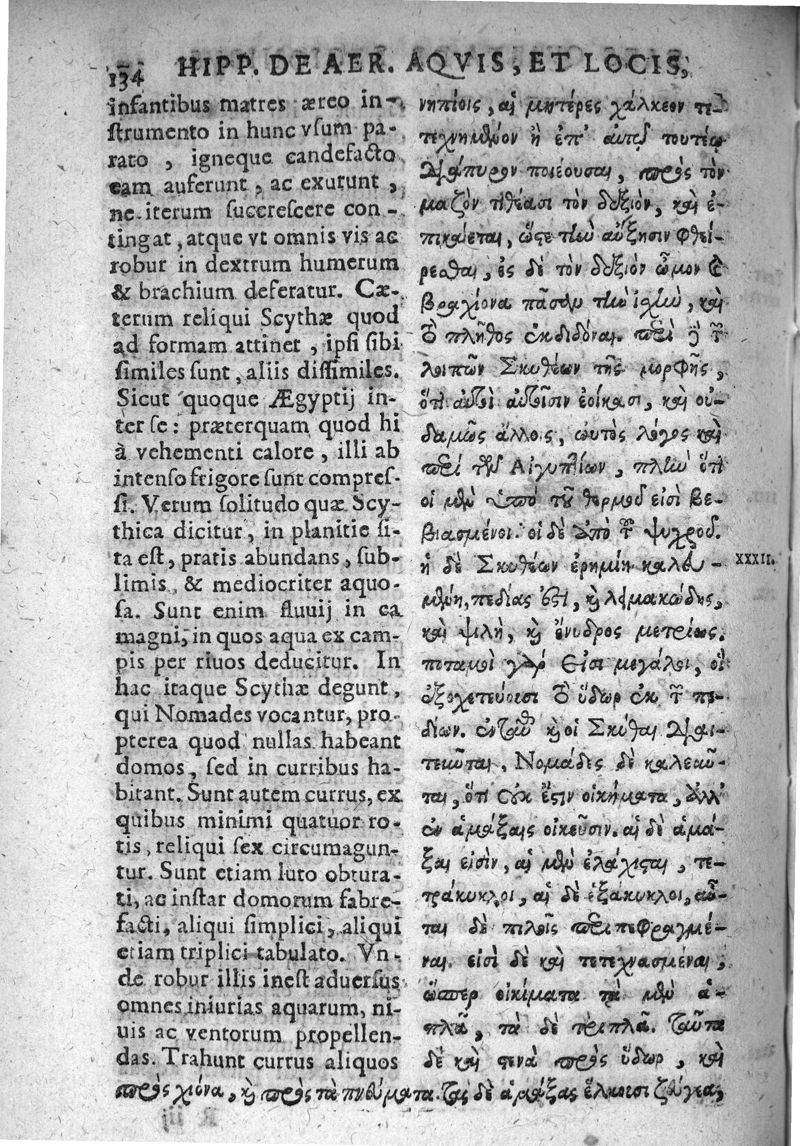 134 HIPP. DE AER. AQVIS, ET LOCIS,
infantibus matres æreo in-
strumento in hunc vsum pa-
rato, igneque candefacto
eam auferunt, ac exurunt,
ne iterum succrescere con-
tingat, atque vt omnis vis ac
robur in dextrum humerum
& brachium deferatur. Cæ-
terum reliqui Scythæ quod
ad formam attinet, ipsi sibi
similes sunt, aliis dissimiles.
Sicut quoque Ægyptij in-
ter se: præterquam quod hi
à vehementi calore, illi ab
intenso frigore sunt compres-
si. Verum solitudo quæ Scy-
thica dicitur, in planitie si-
ta est, pratis abundans, sub-
limis, & mediocriter aquo-
sa. Sunt enim fluuij in ea
magni, in quos aqua ex cam-
pis per riuos deducitur. In
hac itaque Scythæ degunt,
qui Nomades vocantur, pro-
pterea quod nullas habeant
domos, sed in curribus ha-
bitant. Sunt autem currus, ex
quibus minimi quatuor ro-
tis, reliqui sex circumagun-
tur. Sunt etiam luto obtura-
ti, ac instar domorum fabre-
facti, aliqui simplici, aliqui
etiam triplici tabulato. Vn-
de robur illis inest aduersus
omnes iniurias aquarum, ni-
uis ac ventorum propellen-
das. Trahunt currus aliquos
νηπίοις, αἱ μητέρες χάλκεον τε-
τεχνημένον ἢ ἐπ' αὐτῷ τουτέῳ
διάπυρον ποιέουσαι, πρὸς τὸν
μαζὸν τιθέασι τὸν δεξιὸν, καὶ ἐ-
πικαίεται, ὥςε τὴν αὔξησιν φθεί-
ρεσθαι, ἐς δὲ τὸν δεξιὸν ὦμον καὶ
βραχίονα πᾶσαν τὴν ἰσχὺν, καὶ
τὸ πλῆθος ἐκδιδόναι. περὶ δὲ τῶν
λοιπῶν Σκυθέων τῆς μορφῆς,
ὅτι αὐτοὶ αὐτοῖσιν ἐοίκασι, καὶ οὐ-
δαμῶς ἄλλοις, ωὑτὸς λόγος καὶ
περὶ τῶν Αἰγυπτίων, πλὴν ὅτι
οἱ μὲν ὑπὸ τοῦ θερμοῦ εἰσὶ βε-
βιασμένοι. οἱ δὲ ὑπὸ τοῦ ψυχροῦ.
ἡ δὲ Σκυθέων ἐρημίη καλου-
XXXII.
μένη, πεδιάς ἐςι, καὶ λειμακώδης,
καὶ ψιλὴ, καὶ ἔνυδρος μετρίως.
πιταμοὶ γάρ εἰσι μεγάλοι, οἳ
ἐξοχετεύουσι τὸ ὕδωρ ἐκ τῶν πε-
δίων. ἐνταῦθα καὶ οἱ Σκύθαι διαι-
τεῦνται, Νομάδες δὲ καλεῦν-
ται, ὅτι οὐκ ἔςιν οἰκήματα, ἀλλ'
ἐν ἁμάξαις οἰκεῦσιν. αἱ δὲ ἁμά-
ξαι εἰσὶν, αἱ μὲν ἐλάχιςαι, τε-
τράκυκλοι, αἱ δὲ ἑξάκυκλοι, αὗ-
ται δὲ πίλοις περιπεφραγμέ-
ναι. εἰσὶ δὲ καὶ τετεχνασμέναι,
ὥσπερ οἰκίματα τὰ μὲν ἁ-
πλᾶ, τὰ δὲ τριπλᾶ. ταῦτα
δὲ καὶ ςενὰ πρὸς ὕδωρ, καὶ
πρὸς χιόνα, καὶ πρὸς τὰ πνεύματα. τὰς δὲ ἁμάξας ἕλκουσι ζεύγεα,